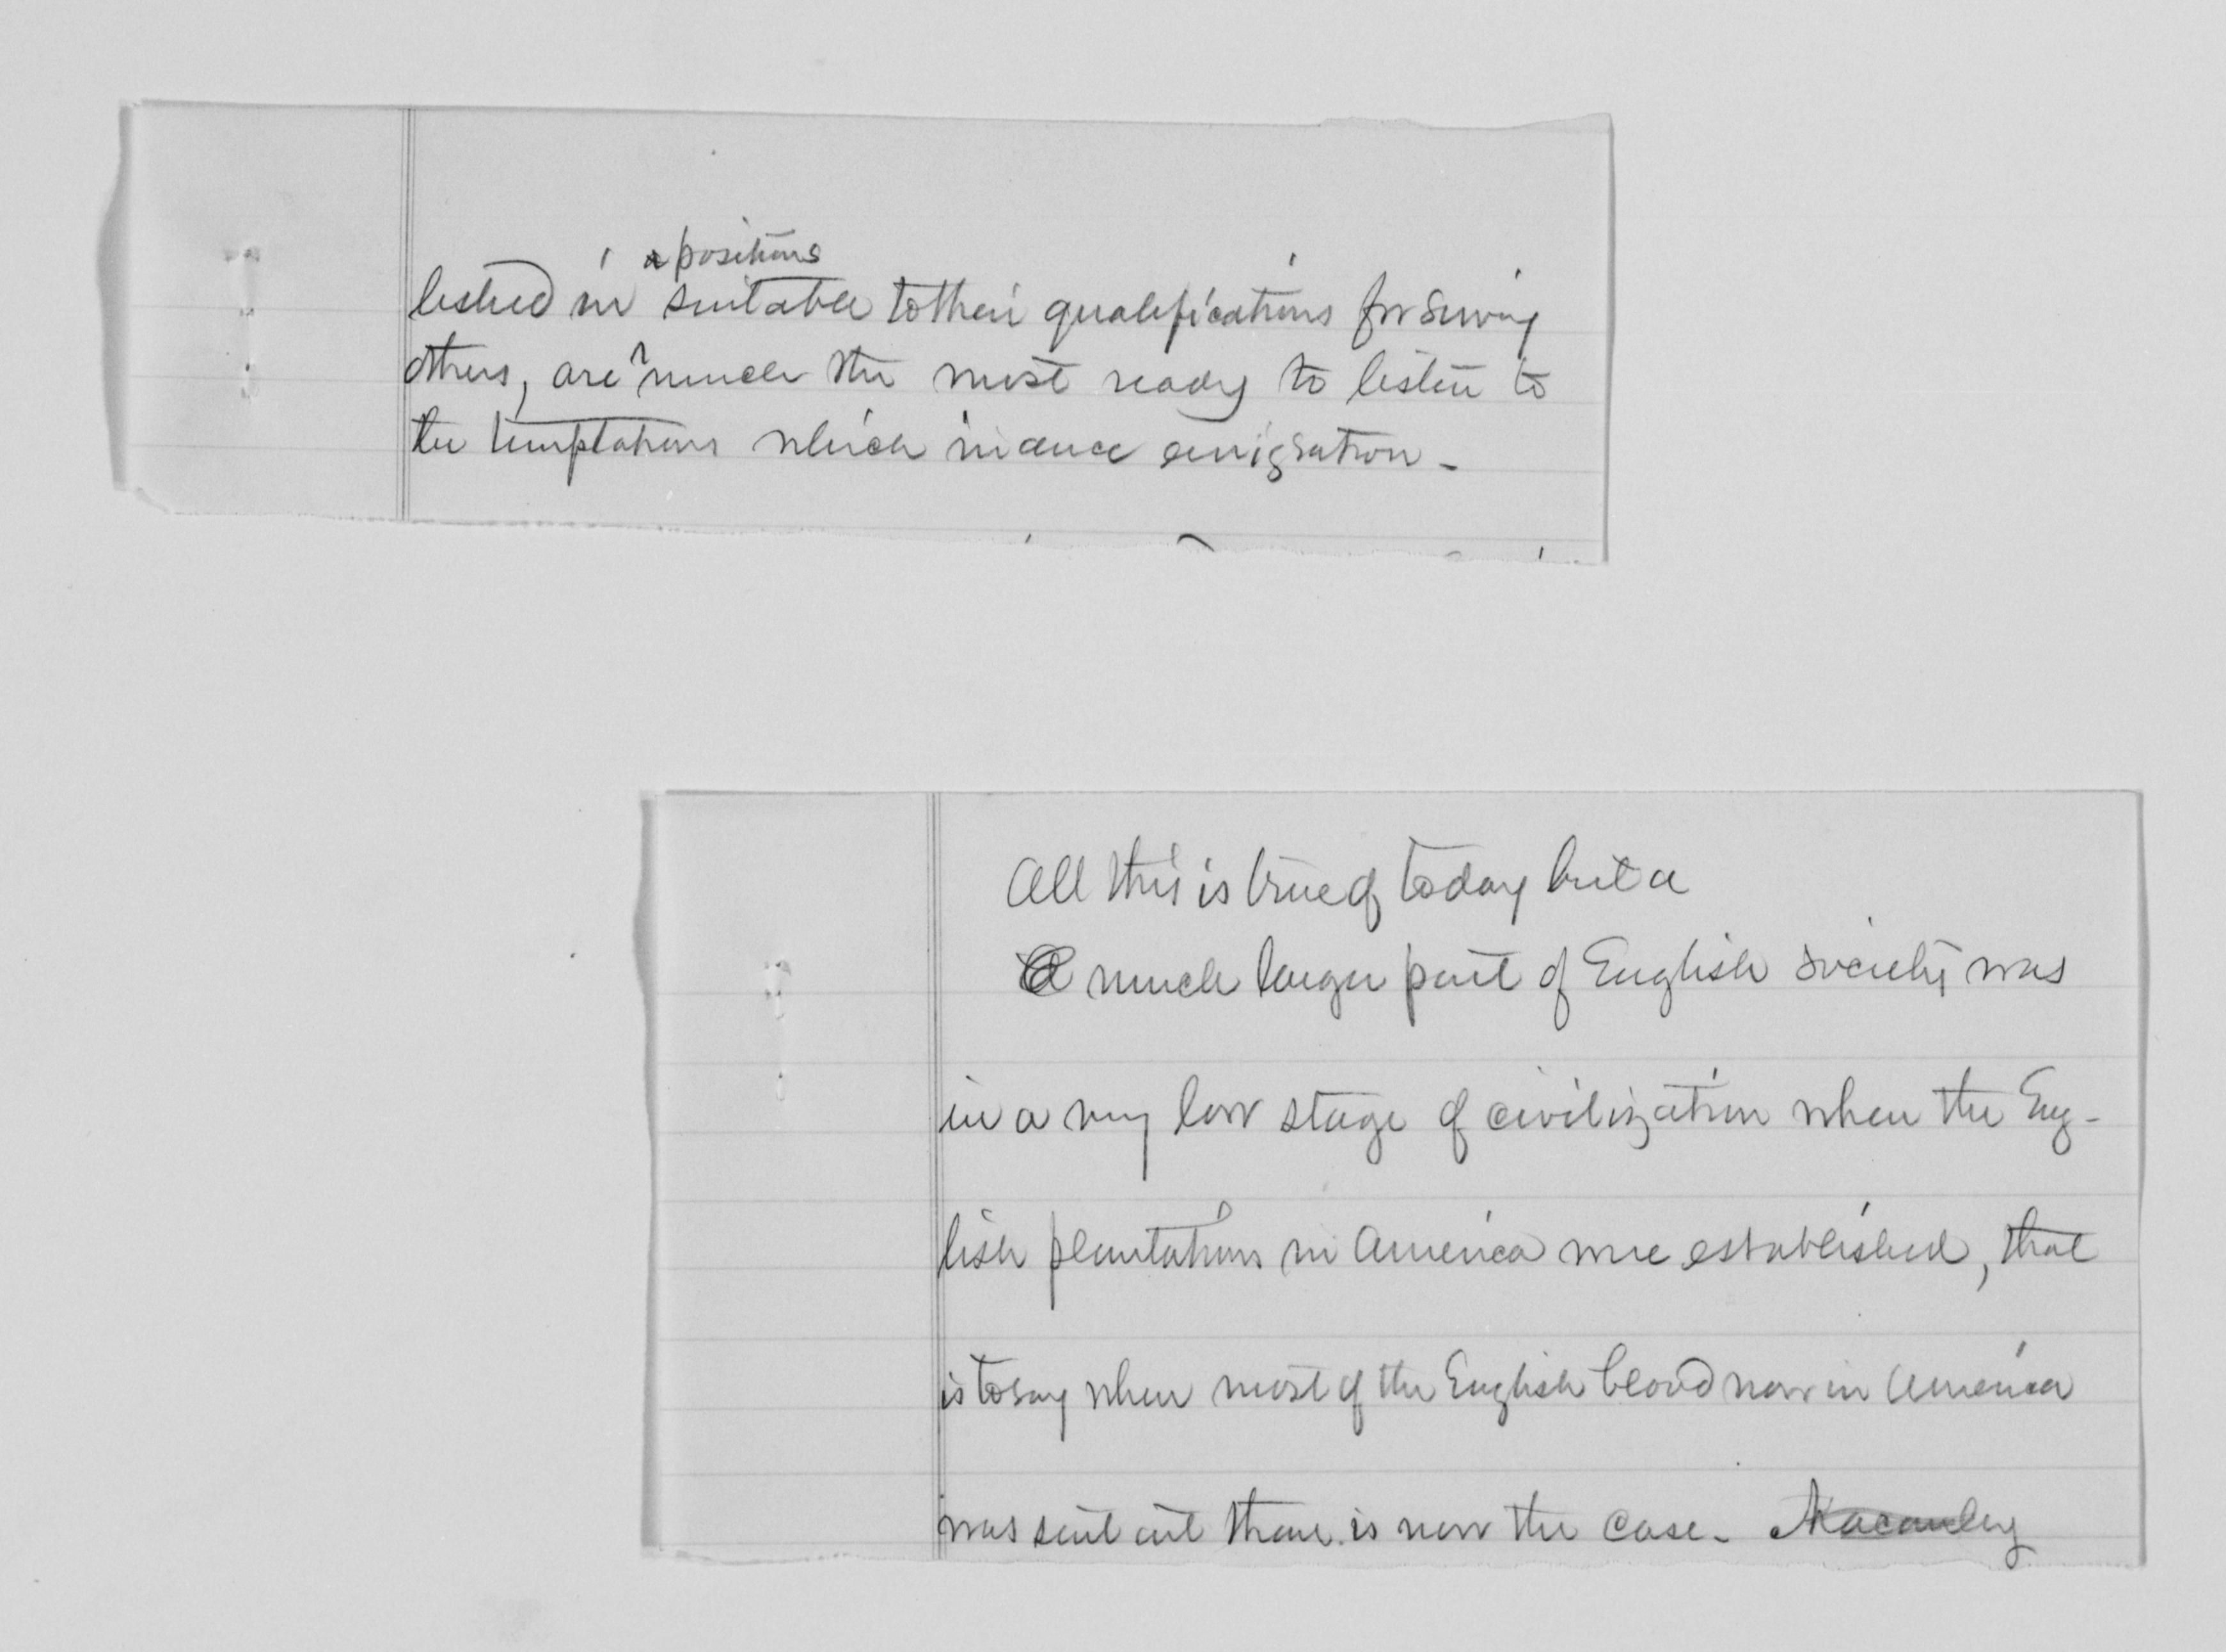 positions
lished in suitable to their qualifications for serving
others, are much the most ready to listen to
the temptations which induce emigration -
All this is true of today but a
A much larger part of English society was
in a very low stage of civilization when the Eng-
lish plantations in America were established, that
is to say when most of the English blood now in America
was sent out than is now the case - Macauley